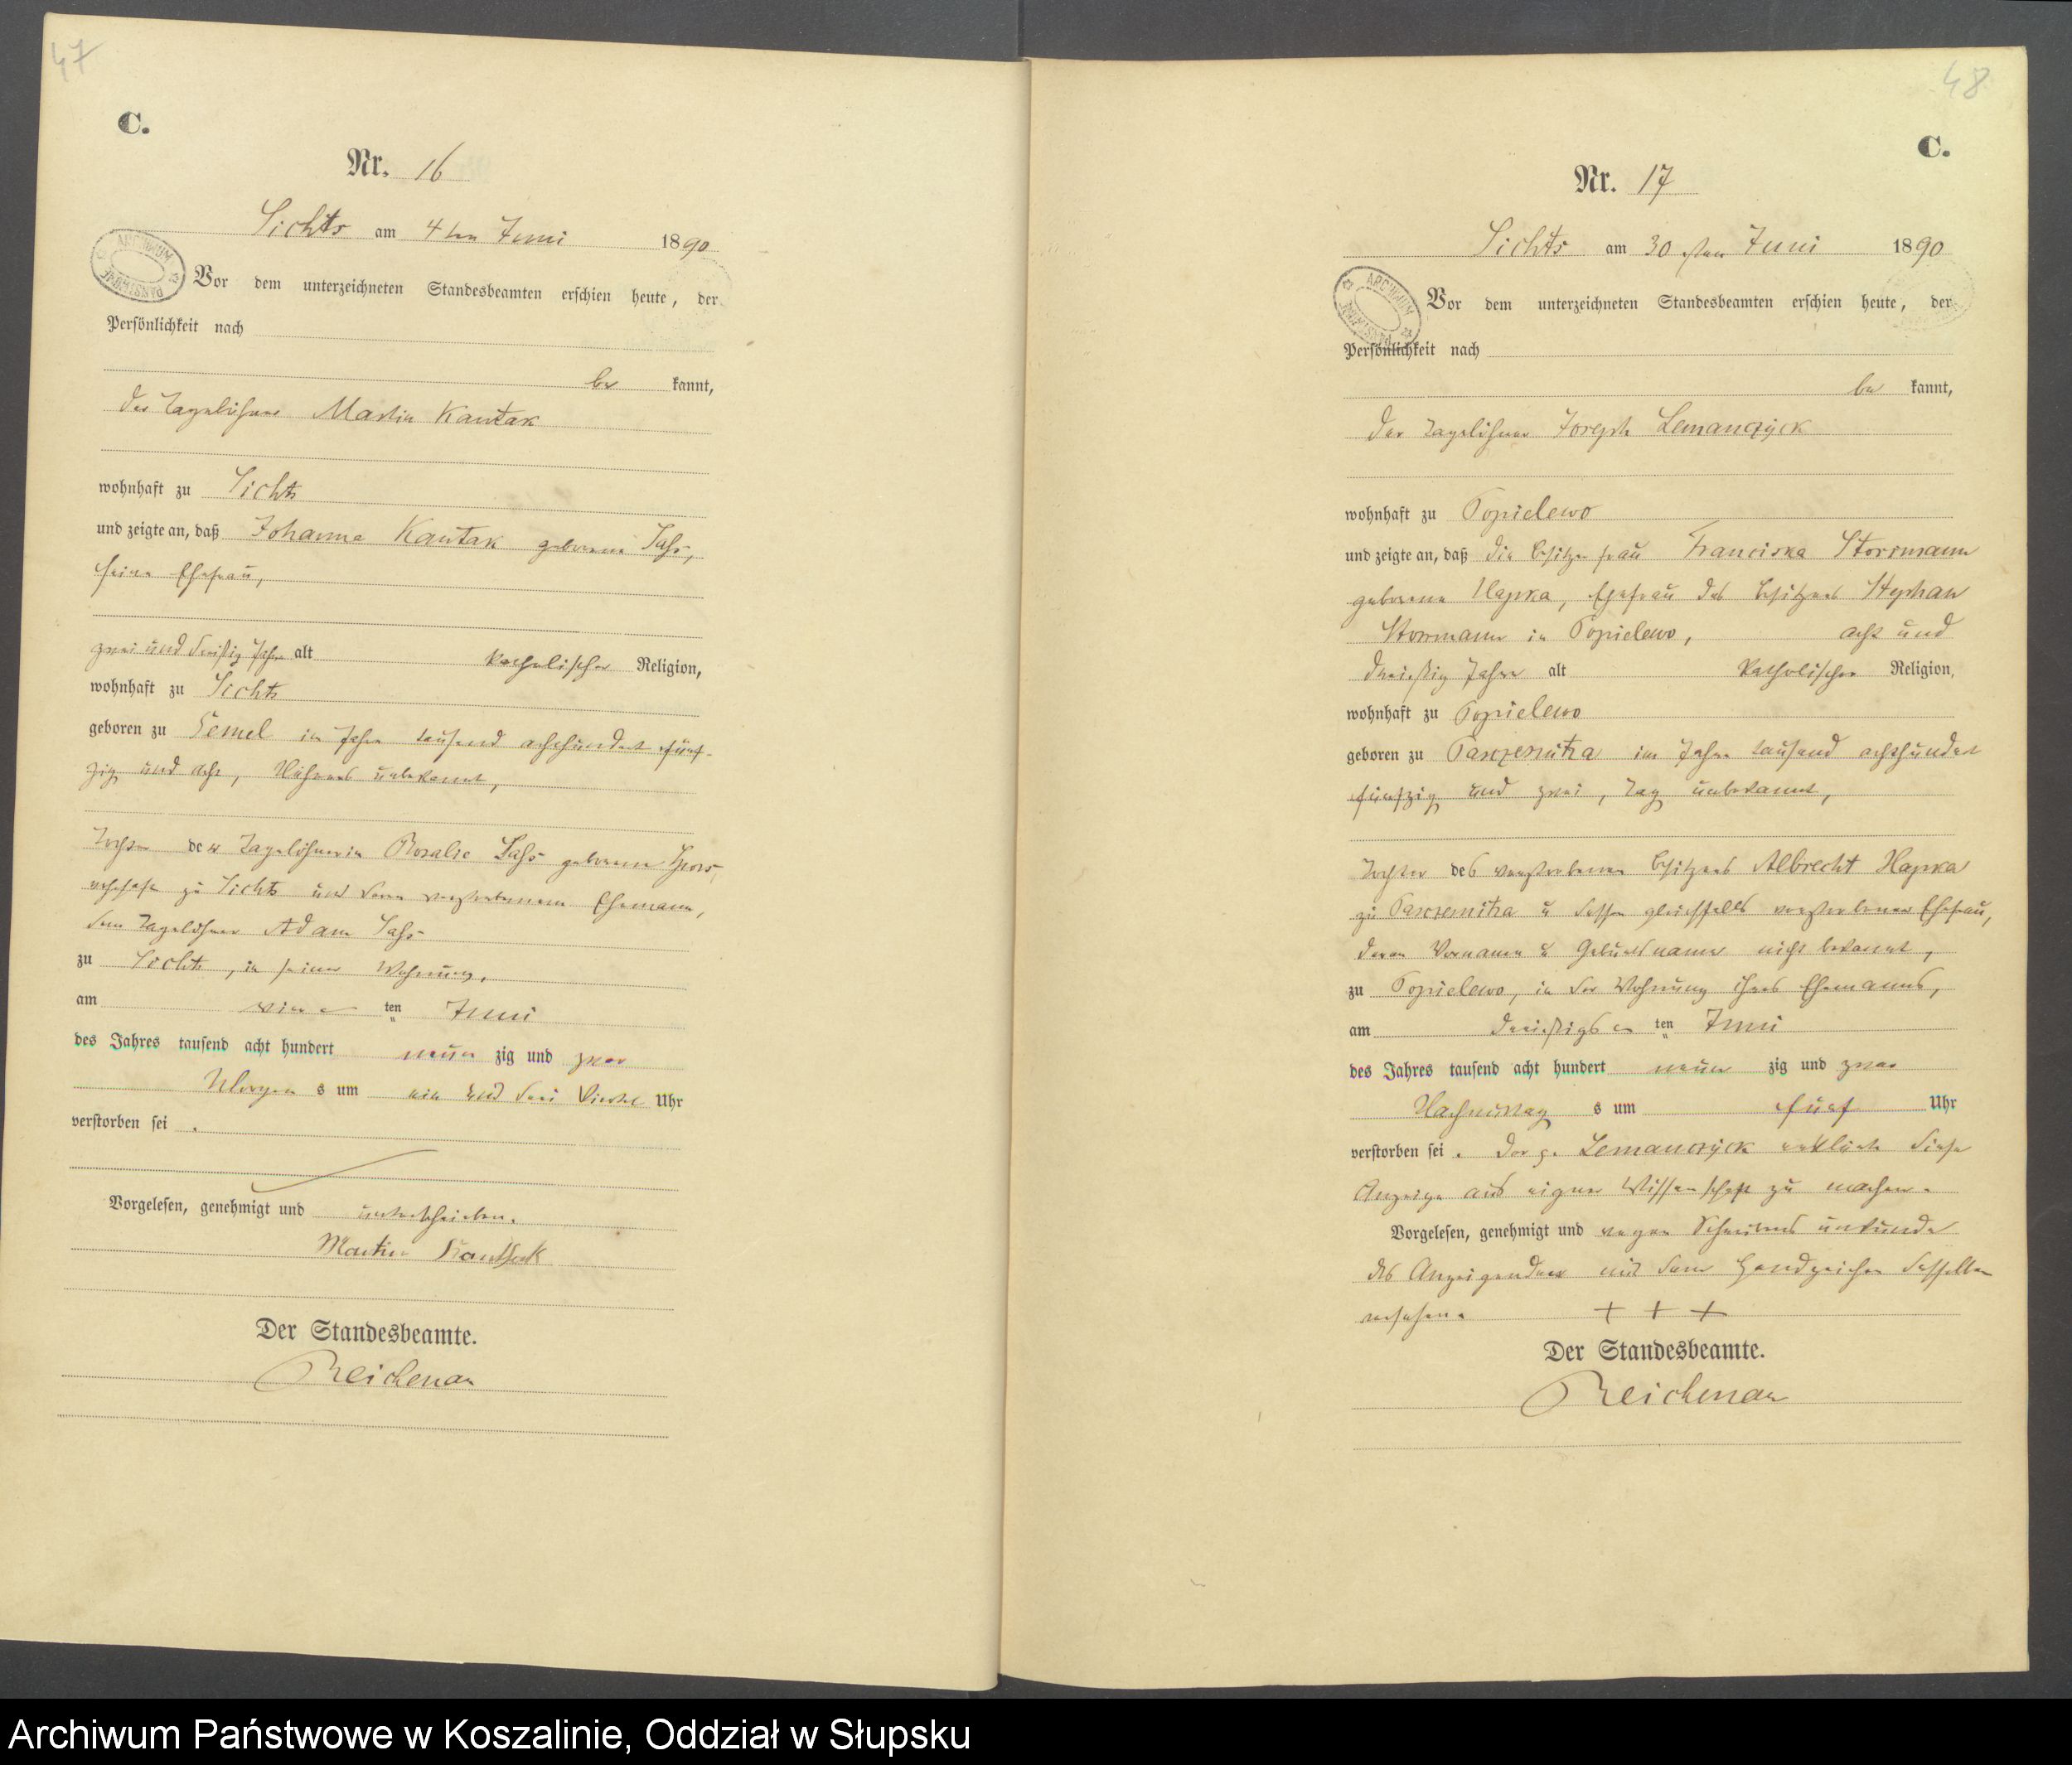 47
C.
Nr. 16
Lichts am 4ten Juni 1890
ARCHIWUM PAŃSTWOWE
Vor dem unterzeichneten Standesbeamten erschien heute, der
Persönlichkeit nach
be kannt,
der Tagelöhner Martin Kautak
wohnhaft zu
und zeigte an, daß Johanna Kautak geborene
seine Ehefrau,
zwei und dreißig Jahre alt katholischer Religion,
wohnhaft zu
geboren zu im Jahre tausend achthundert fünf-
zig und acht, Näheres unbekannt,
Tochter der Tagelöhnerin Rosalie geborene
wohnhaft zu und deren verstorbenem Ehemann,
dem Tagelöhner Adam
zu , in seiner Wohnung,
am vier ten Juni
des Jahres tausend acht hundert neun zig und zwar
Morgen s um ein und drei Viertel Uhr
verstorben sei .
Vorgelesen, genehmigt und unterschrieben.
Martin
Der Standesbeamte.
Reichenau
48
C.
Nr. 17
Lichts am 30 sten Juni 1890
ARCHIWUM PAŃSTWOWE
Vor dem unterzeichneten Standesbeamten erschien heute, der
Persönlichkeit nach
be kannt,
der Tagelöhner Joseph Lemanczyck
wohnhaft zu Popielewo
und zeigte an, daß die Besitzerfrau Franciska
geborene Hapka, Ehefrau des Besitzers Stephan
in Popielewo, acht und
dreißig Jahre alt katholischer Religion,
wohnhaft zu Popielewo
geboren zu im Jahre tausend achthundert
fünfzig und zwei, Tag unbekannt,
Tochter des verstorbenen Besitzers Albrecht Hapka
zu u dessen gleichfalls verstorbenen Ehefrau,
deren Vornamen u Geburtsname nicht bekannt,
zu Popielewo, in der Wohnung ihres Ehemanns,
am dreißigs ten Juni
des Jahres tausend acht hundert neun zig und zwar
Nachmittag s um fünf Uhr
verstorben sei . Der p. Lemanczyck erklärte diese
Anzeige aus eigner Wissenschaft zu machen.
Vorgelesen, genehmigt und wegen Schreibens unkunde
des Anzeigenden mit dem Handzeichen desselben
versehen. + + +
Der Standesbeamte.
Reichenau
Archiwum Państwowe w Koszalinie, Oddział w Słupsku